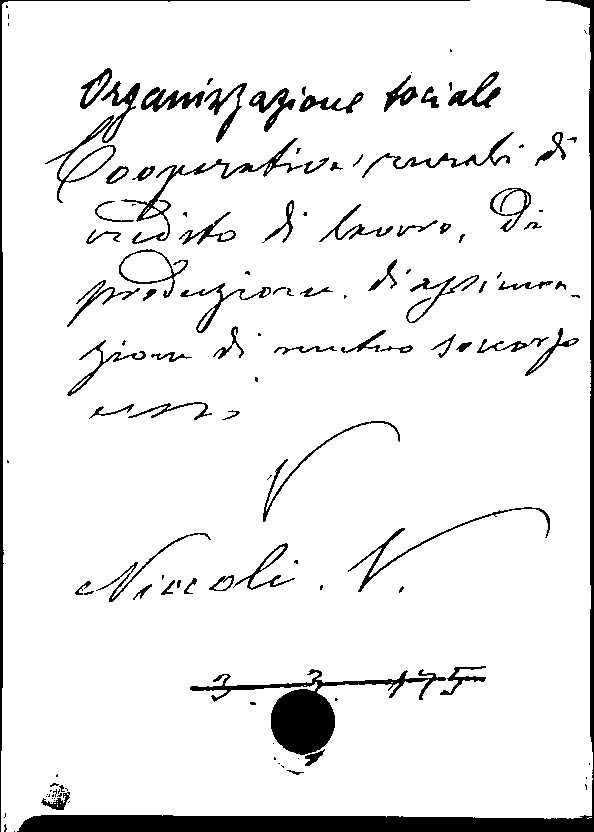 Organizzazione sociale
Cooperative rurali di
credito di lavoro, di
produzione. di assicura-
zione di mutuo soccorso
ecc.
V
Niccoli. V.
3 3 175